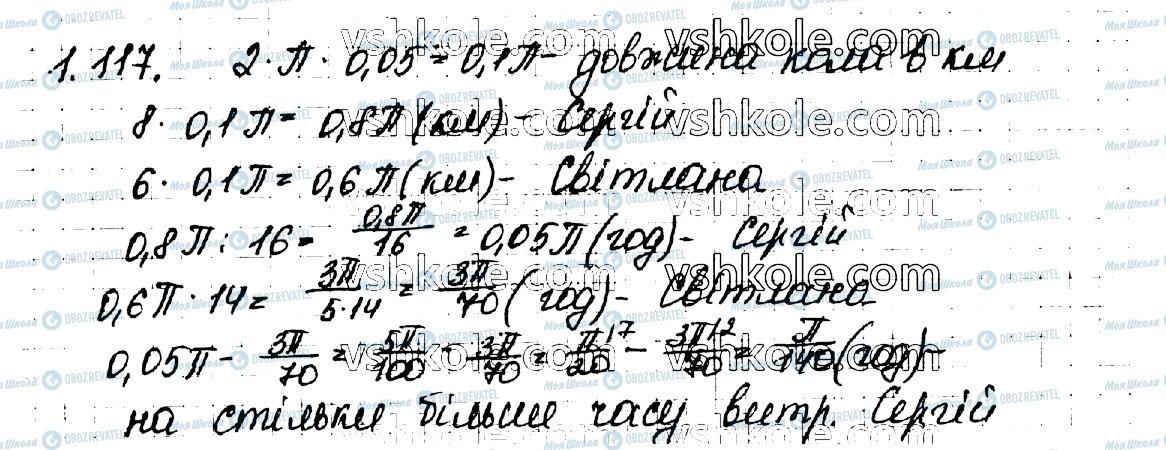 1.117. 2·π·0,05=0,1π- довжина кола в км
8·0,1π=0,8π(км)- Сергій
6·0,1π=0,6π(км)- Світлана
0,8π:16=0,8π/16=0,05π(год)- Сергій
0,6π·14=3π/5·14=3π/70(год)- Світлана
0,05π-3π/70=5π/100-3π/70=π/20|7-3π/70|2=π/140(год)-
на стільки більше часу витр. Сергій